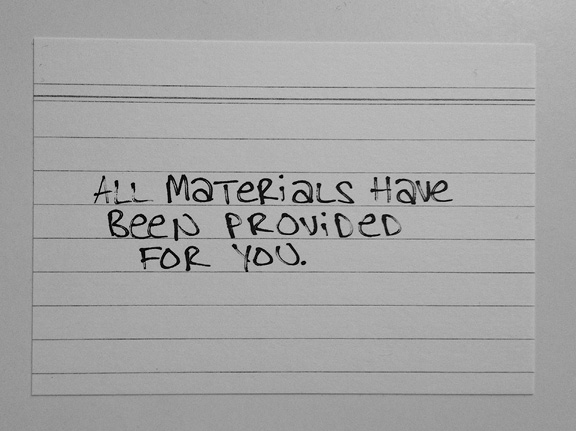 ALL MaTeRiaLS Have
BeeN PROViDeD
FOR YOU.